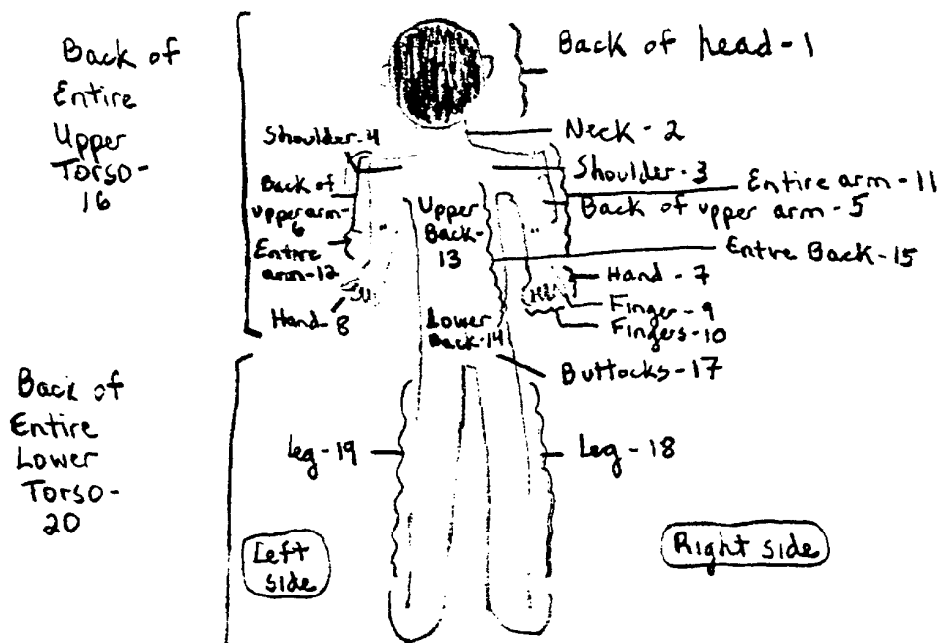 Back of
Entire
Upper
Torso-
16
Back of head-1
Neck-2
Shoulder-4
Shoulder-3
Entire arm-11
Back of
upper arm-
6
Back of upper arm-5
Upper
Back-
13
Entire Back-15
Entire
arm-12
Hand-7
Hand-8
Finger-9
Fingers-10
Lower
Back-14
Buttocks-17
Back of
Entire
Lower
Torso-
20
Leg-19
Leg-18
Left
side
Right side